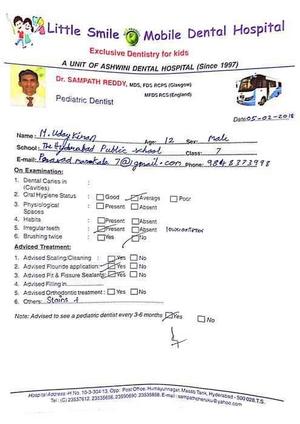 Little Smile Mobile Dental Hospital
Exclusive Dentistry for kids
A UNIT OF ASHWINI DENTAL HOSPITAL (Since 1997)
Dr. SAMPATH REDDY, MDS, FDS RCPS (Glasgow)
MFDS RCS (England)
Pediatric Dentist
Date: 05-02-2018
Name: M. Uday Kiran Age: 12 Sex: Male
School: The Hyderabad Public School Class: 7
E-mail: 7@gmail.com Phone: 9848373998
On Examination:
1. Dental Caries in (Cavities) :
2. Oral Hygiene Status : Good Average Poor
3. Physiological Spaces : Present Absent
4. Habits : Present Absent
5. Irregular teeth : Present Absent
6. Brushing twice : Yes No
Adviced Treatment:
1. Advised Scaling/Cleaning : Yes No
2. Advised Flouride application : Yes No
3. Advised Pit & Fissure Sealants : Yes No
4. Advised Filling in
5. Advised Orthodontic treatment : Yes No
6. Others: Stains
Note: Advised to see a pediatric dentist every 3-6 months Yes No
Hospital Address: H.No. 10-3-304/13, Opp. Post Office, Humayunnagar, Masab Tank, Hyderabad - 500 028.T.S.